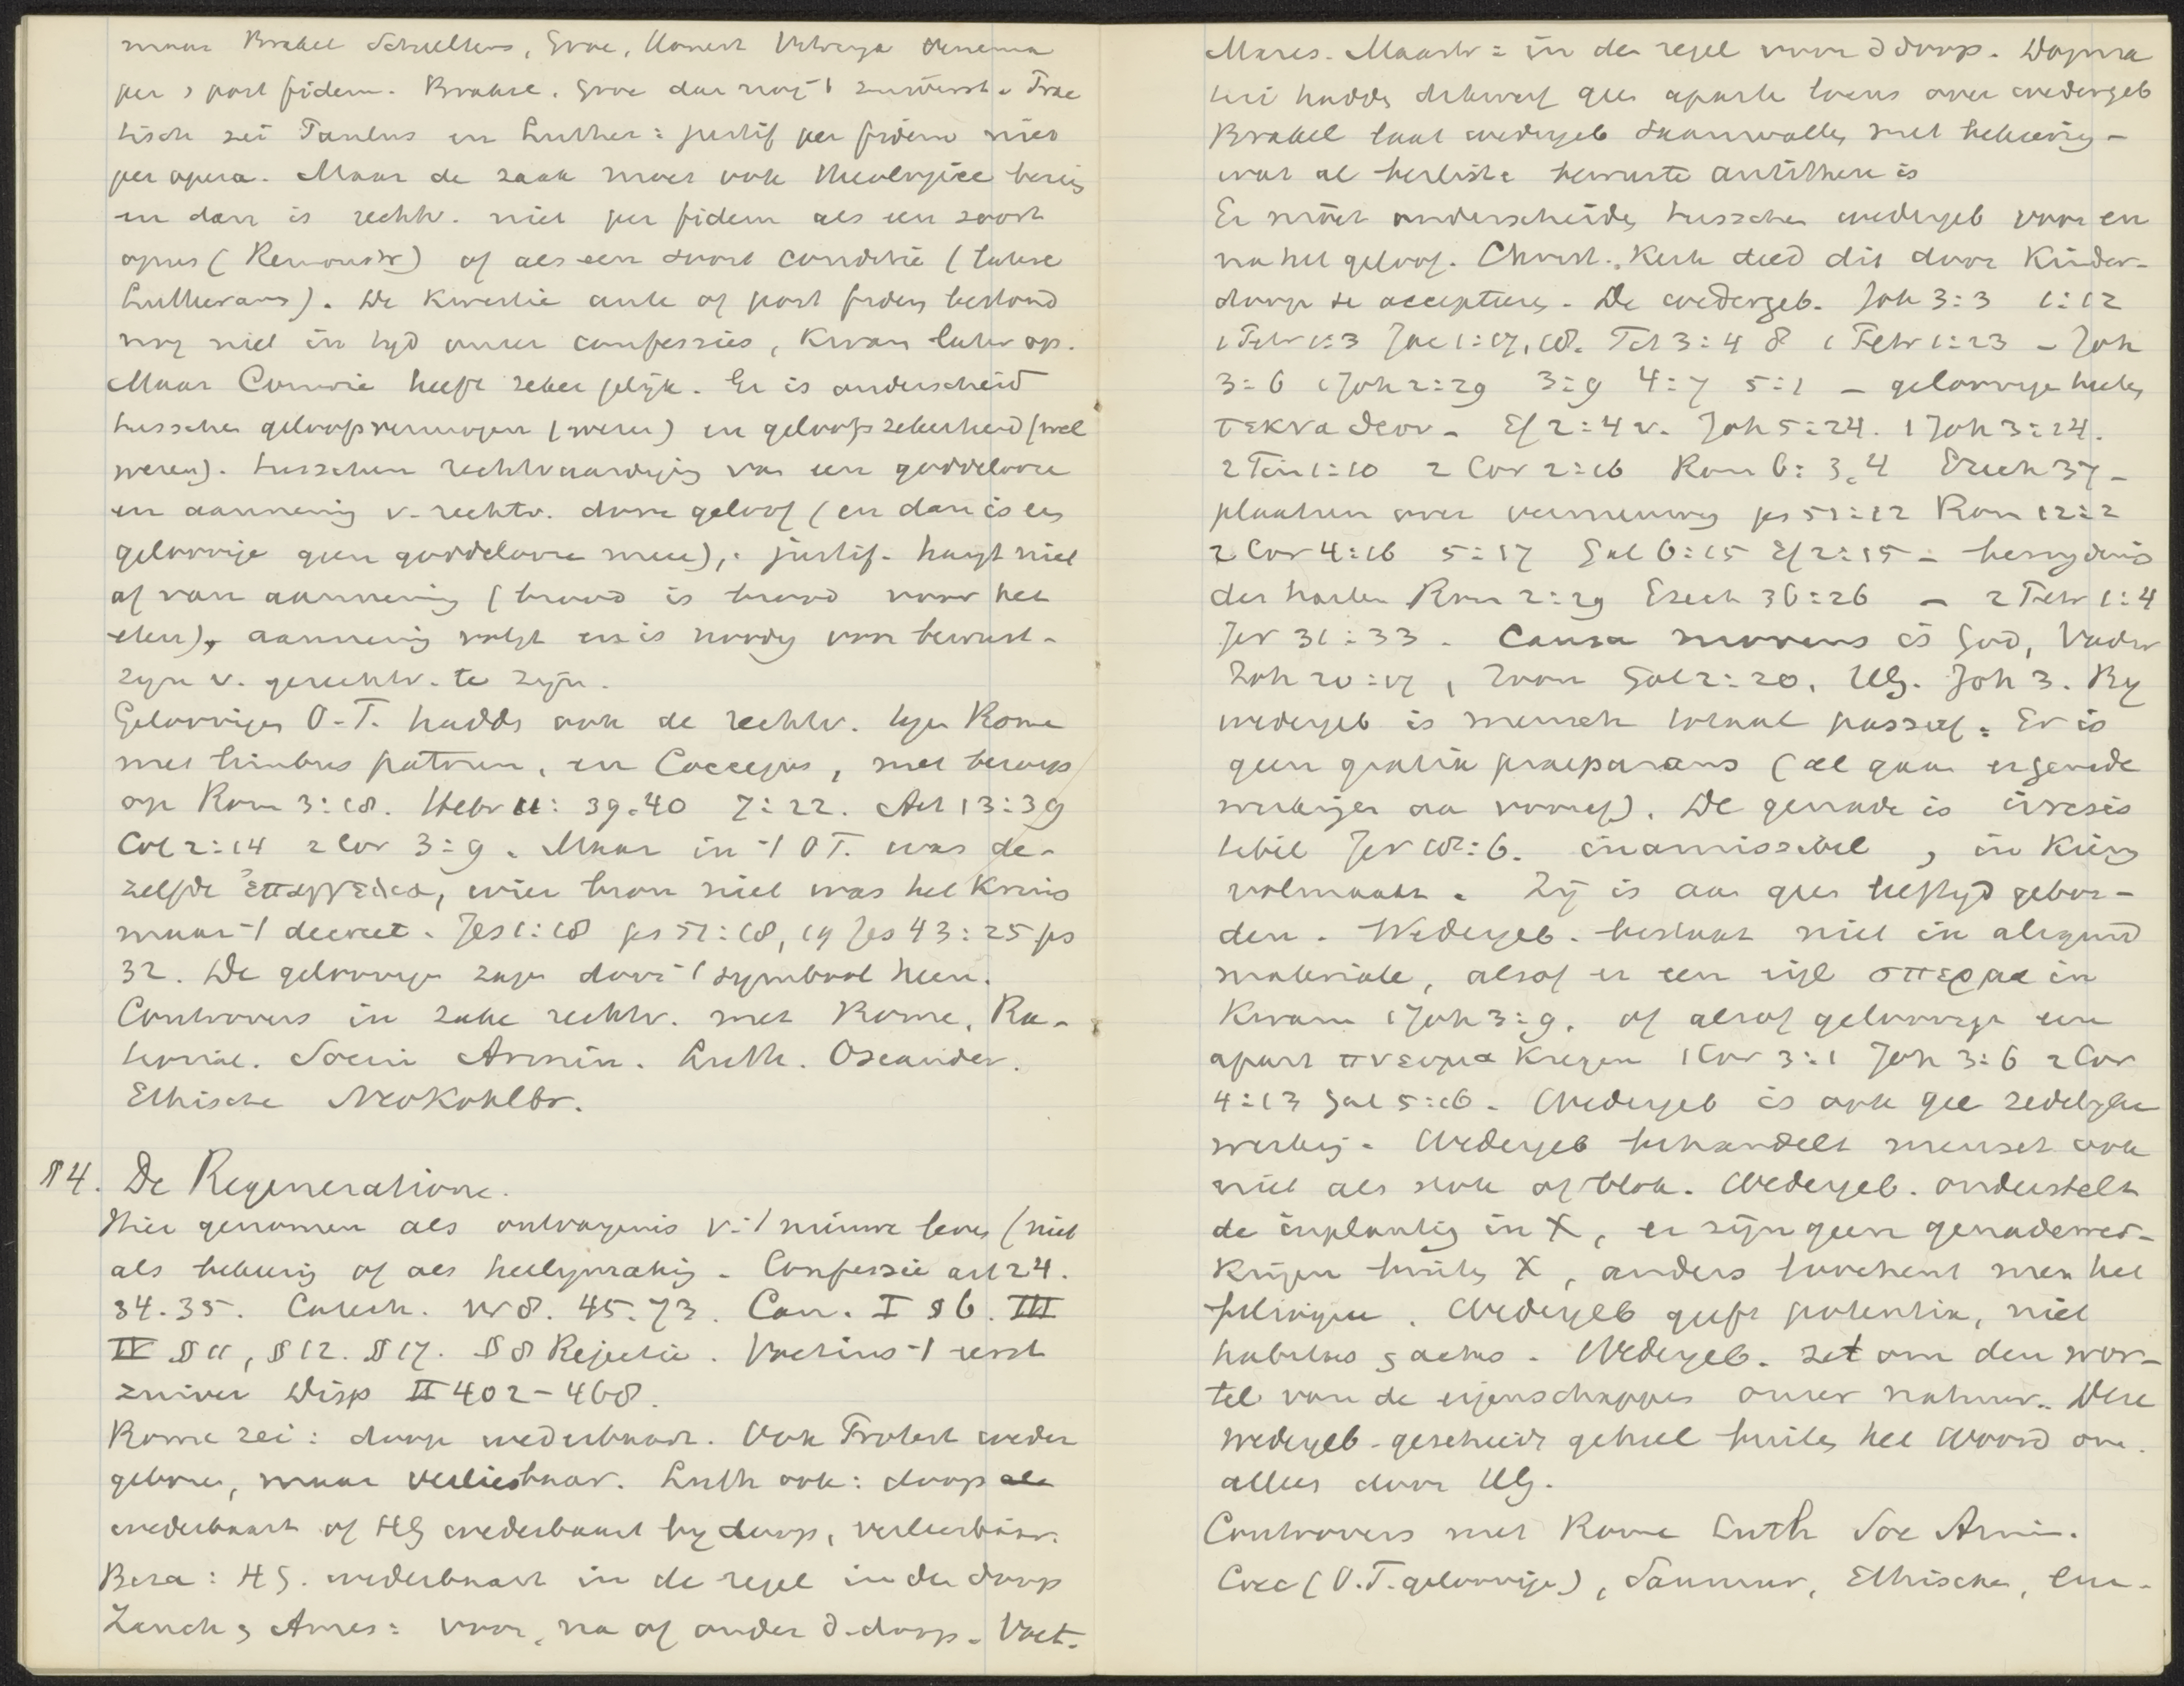 maar Brakel Schultens, Groe, Honert Vitringa Venema
per & post fidem. Brakel, Groe dan nog -/ zuiverst. Prac
tisch zei Paulus en Luther: justif per fidem niet
per opera. Maar de zaak moet ook theologice bezig
en dan is rechtv. niet per fidem als een soort
opus (Remonstr) of als een soort conditie (latere
Lutherans). De kwestie ante of post fidem bestond
nog niet in tijd onzer confessies, kwam later op.
Maar Comrie heeft zeker gelijk. Er is onderscheid
tusschen geloofsvermogen (weten) en geloofszekerheid (wel
weten). tusschen rechtvaardiging van een goddelooze
en aanneming v. rechtv. door geloof (en dan is een
geloovige geen goddelooze meer), justif. hangt niet
af van aanneming (brood is brood voor het
eten), aanneming volgt en is noodig voor bewust-
zijn v. gerechtv. te zijn.
Geloovigen O.T. hadden ook de rechtv. tegen Rome
met limbus patrum, en Coccejus, met beroep
op Rom 3:18. Hebr 11: 39.40 7:22. Act 13:39
Col 2:14 2 Cor 3:9. Maar in -/ O T. was de-
zelfde ἐπαγγελια, wier bron niet was het kruis
maar -/ decreet. Jes 1:18 ps 51:18,19 Jes 43:25 ps
32. De geloovigen zagen door -/ symbool heen.
Controvers in zake rechtv. met Rome, Ra-
tional. Socin Armin. Luth. Oseander.
Ethische NeoKohlbr.
§4. De Regeneratione.
Hier genomen als ontvangenis v. -/ nieuwe leven (niet
als bekeering of als heiligmaking. Confessie art 24.
34.35. Catech. vr 8. 45.73. Can. I §6. III
IV §11, §12. §17. §8 Rejectie. Voetius -/ eerst
zuiver Disp II 402-468.
Rome zei: doop wederbaart. Ook Protest weder
geboren, maar verliesbaar. Luth ook: doop
wederbaart of HG wederbaart bij doop, verliesbaar.
Beza: HG. wederbaart in de regel in den doop
Zanch & Ames: voor, na of onder d. doop. Voet.
Mares. Maastr: in den regel voor d doop. Dogma
tici hadden dikwerf geen aparte locus over wedergeb
Brakel laat wedergeb saamvallen met bekeering -
wat al heeliste bewuste antithese is
Er moet onderscheiden tusschen wedergeb voor en
na het geloof. Christ. Kerk deed dit door Kinder-
doop te accepteeren. De wedergeb. Joh 3:3 1:12
1 Petr 1:3 Jac 1:17,18. Tit 3:4 8 1 Petr 1:23 - Joh
3:6 1 Joh 2:29 3:9 4:7 5:1 - geloovigen heeten
τεκνα θεου. Ef 2:4 v. Joh 5:24. 1 Joh 3:14.
2 Tim 1:10 2 Cor 2:16 Rom 6:3,4 Ezech 37 -
plaatsen over vernieuwing ps 51:12 Rom 12:2
2 Cor 4:16 5:17 Gal 6:15 Ef 2:15 - besnijdenis
der harten Rom 2:29 Ezech 36:26 - 2 Petr 1:4
Jer 31:33. Causa movens is God, Vader
Joh 20:17, Zoon Gal 2:20, HG. Joh 3. Bij
wedergeb is mensch totaal passief. Er is
geen gratia praeparans (al gaan er genade
werkingen aan vooraf). De genade is irresis
tibil Jer 18:6. inamissibil, in kiem
volmaakt. Zij is aan geen leeftijd gebon-
den. Wedergeb. bestaat niet in alszijnd
materiale, alsof er een ijl σπερμα in
kwam 1 Joh 3:9. of alsof geloovigen een
apart πνευμα kregen 1 Cor 3:1 Joh 3:6 2 Cor
4:13 Gal 5:16. Wedergeb is ook geen zedelijke
werking. Wedergeb behandelt mensch ook
niet als stok of blok. Wedergeb. onderstelt
de inplanting in X, er zijn geen genadewer-
kingen buiten X, anders loochent men het
. Wedergeb geeft potentia, niet
habitus & actus. Wedergeb. zet om den wor-
tel van de eigenschappen onzer natuur. Deze
wedergeb. geschiedt geheel buiten het Woord om.
alleen door HG.
Controvers met Rome Luth Soc Armin.
Cocc (O.T. geloovigen), Saumur, Ethische,